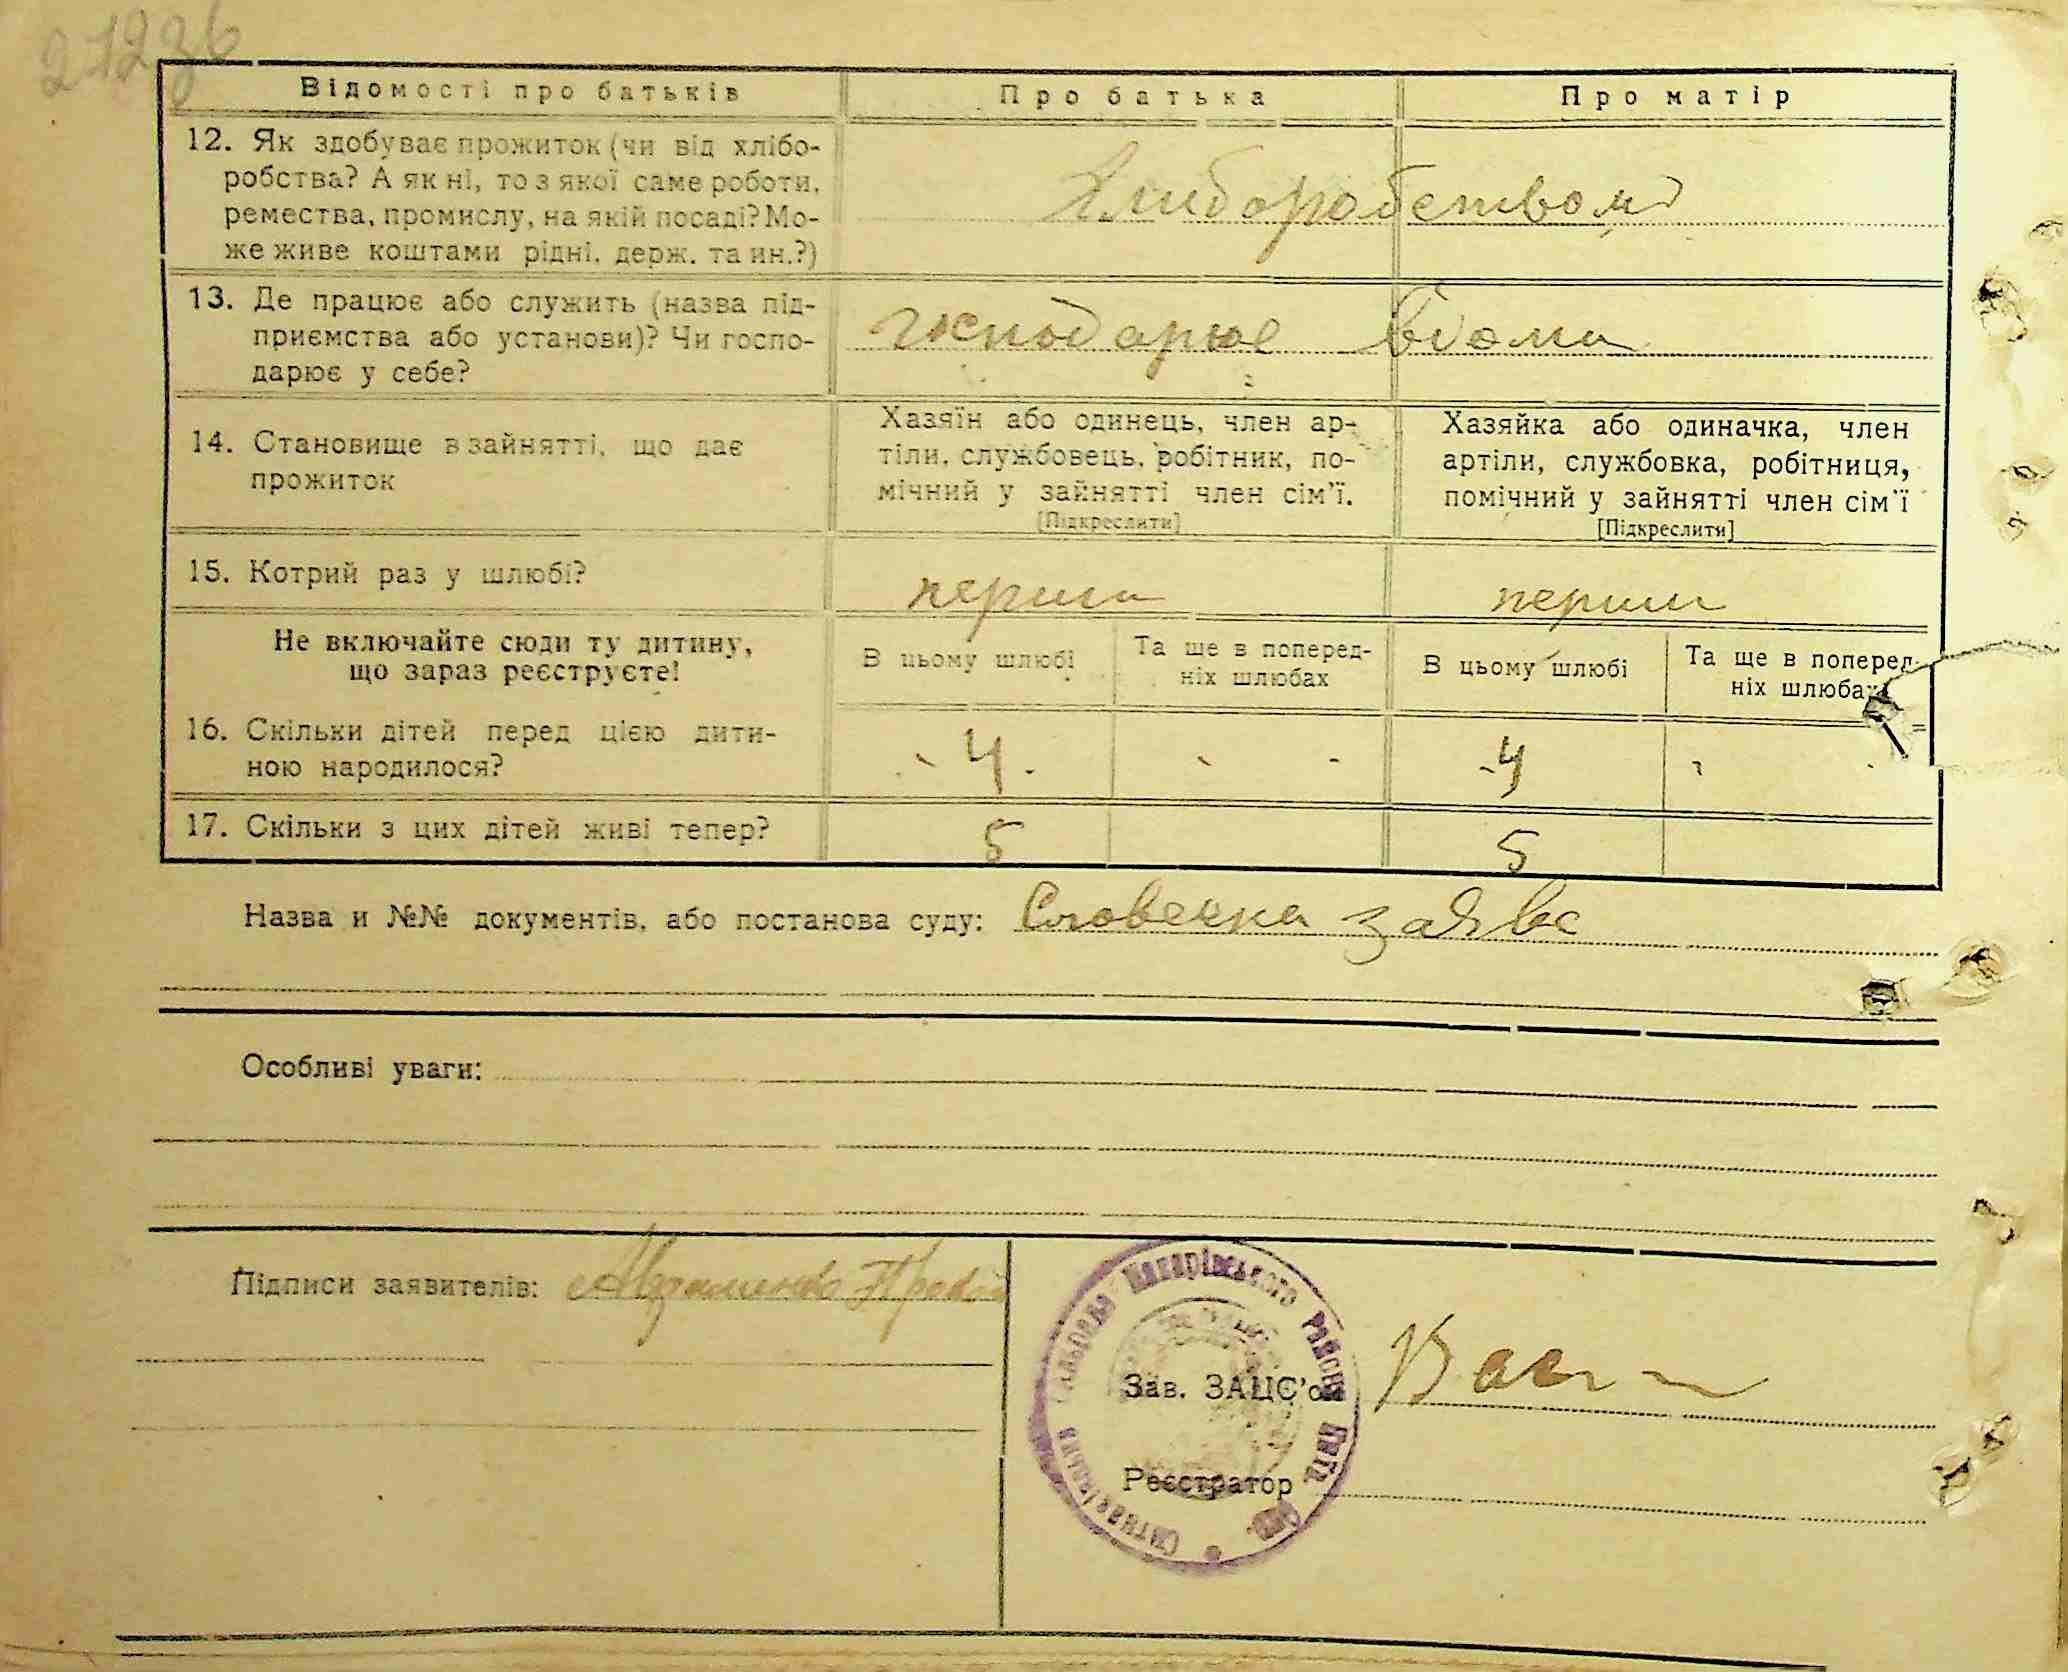 21236
Відомості про батьків
Про батька
Про матір
12. Як здобуває прожиток (чи від хлібо-
робства? А як ні, то з якої саме роботи,
ремества, промислу, на якій посаді? Мо-
же живе коштами рідні, держ. та ин.?)
Хлиборобством
13. Де працює або служить (назва під-
приємства або установи)? Чи госпо-
дарює у себе?
господарює вдома
14. Становище в зайнятті, що дає
прожиток
Хазяїн або одинець, член ар-
тіли, службовець, робітник, по-
мічний у зайнятті член сім'ї.
[Підкреслити]
Хазяйка або одиначка, член
артіли, службовка, робітниця,
помічний у зайнятті член сім'ї
[Підкреслити]
15. Котрий раз у шлюбі?
перши
перши
Не включайте сюди ту дитину,
що зараз реєструєте!
В цьому шлюбі
Та ще в поперед-
ніх шлюбах
В цьому шлюбі
Та ще в поперед-
ніх шлюбах
16. Скільки дітей перед цією дити-
ною народилося?
4
4
17. Скільки з цих дітей живі тепер?
5
5
Назва и №№ документів, або постанова суду: Словечна заява
Особливі уваги:
Підписи заявителів: Авраменко
Макарівського району
Зав. ЗАЦС'ом
Реєстратор